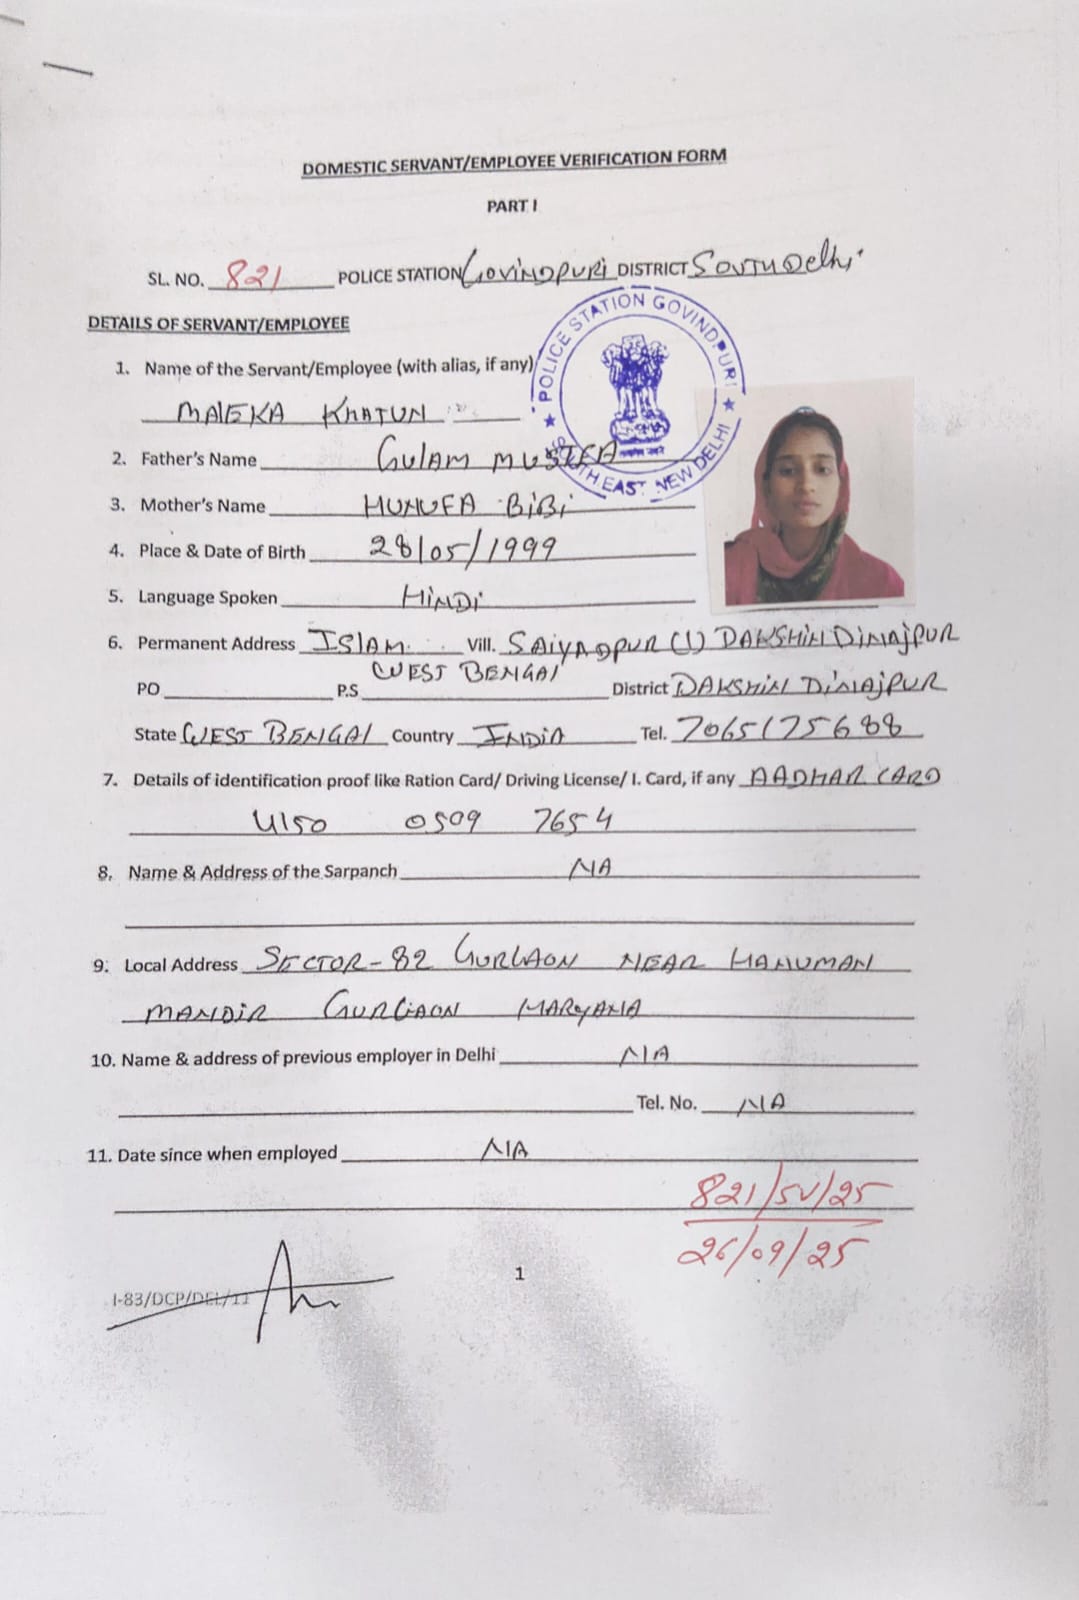 DOMESTIC SERVANT/EMPLOYEE VERIFICATION FORM
PART I
SL. NO. 821 POLICE STATION GOVINDPURI DISTRICT SOUTH Delhi
POLICE STATION GOVINDPURI
SOUTH EAST NEW DELHI
DETAILS OF SERVANT/EMPLOYEE
1. Name of the Servant/Employee (with alias, if any)
MALEKA KHATUN
2. Father's Name GULAM MUSTFA
3. Mother's Name HUNUFA BiBi
4. Place & Date of Birth 28/05/1999
5. Language Spoken HiNDi
6. Permanent Address ISLAM Vill. SAIYADPUR (1) DAKSHIN DINAJPUR
WEST BENGAL
PO P.S District DAKSHIN DINAJPUR
State WEST BENGAL Country INDIA Tel. 7065175688
7. Details of identification proof like Ration Card/ Driving License/ I. Card, if any AADHAR CARD
4150 0509 7654
8. Name & Address of the Sarpanch NA
9. Local Address SECTOR-82 GURGAON NEAR HANUMAN
MANDIR GURGAON HARYANA
10. Name & address of previous employer in Delhi NA
Tel. No. NA
11. Date since when employed NA
821/SV/25
26/09/25
1
I-83/DCP/DEL/11